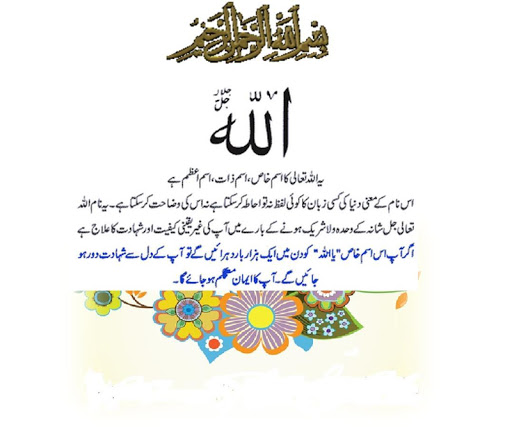 بسم الله الرحمن الرحيم
الله جل جلالہ
یہ اللہ تعالیٰ کا اسم خاص، اسم ذات، اسم اعظم ہے
اس نام کے معنی دنیا کی کسی زبان کا کوئی لفظ نہ تو احاطہ کر سکتا ہے نہ اس کی وضاحت کر سکتا ہے۔ یہ نام اللہ
تعالیٰ جل شانہ کے وحدہ ولا شریک ہونے کے بارے میں آپ کی غیر یقینی کیفیت اور شہادت کا علاج ہے
اگر آپ اس اسم خاص "یا اللہ" کو دن میں ایک ہزار بار دہرائیں گے تو آپ کے دل سے شہادت دور ہو
جائیں گے۔ آپ کا ایمان مستحکم ہو جائے گا۔